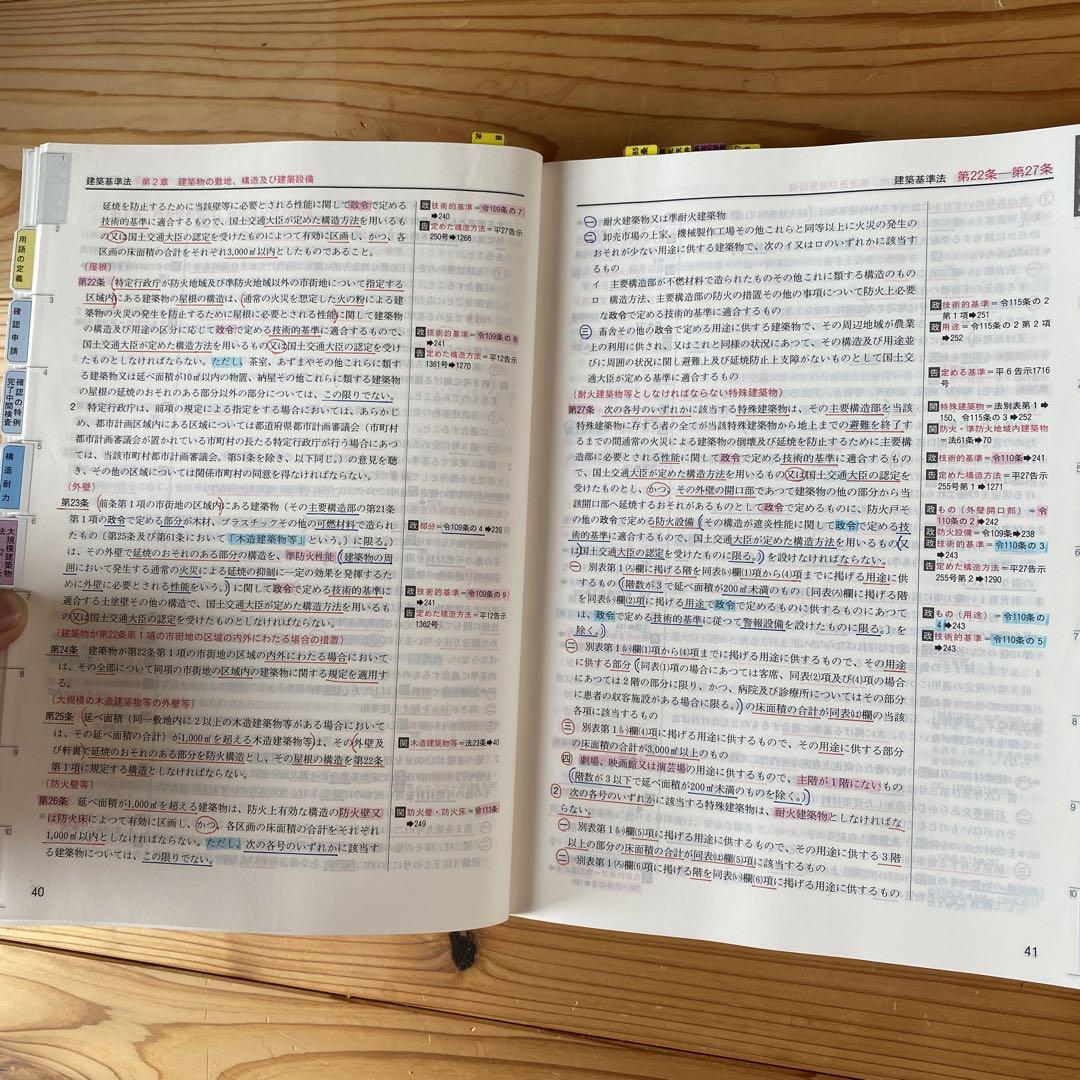 建築基準法 第2章 建築物の敷地、構造及び建築設備
延焼を防止するために当該壁等に必要とされる性能に関して政令で定める
技術的基準に適合するもので、国土交通大臣が定めた構造方法を用いるもの
の又は国土交通大臣の認定を受けたものによつて有効に区画し、かつ、各
区画の床面積の合計をそれぞれ3,000㎡以内としたものであること。
(屋根)
第22条 特定行政庁が防火地域及び準防火地域以外の市街地について指定する
区域内にある建築物の屋根の構造は、通常の火災を想定した火の粉による建
築物の火災の発生を防止するために屋根に必要とされる性能に関して建築物
の構造及び用途の区分に応じて政令で定める技術的基準に適合するもので、
国土交通大臣が定めた構造方法を用いるもの又は国土交通大臣の認定を受け
たものとしなければならない。ただし、茶室、あずまやその他これらに類す
る建築物又は延べ面積が10㎡以内の物置、納屋その他これらに類する建築物
の屋根の延焼のおそれのある部分以外の部分については、この限りでない。
2 特定行政庁は、前項の規定による指定をする場合においては、あらかじ
め、都市計画区域内にある区域については都道府県都市計画審議会(市町村
都市計画審議会が置かれている市町村の長たる特定行政庁が行う場合にあつ
ては、当該市町村都市計画審議会。第51条を除き、以下同じ。)の意見を聴
き、その他の区域については関係市町村の同意を得なければならない。
(外壁)
第23条 前条第1項の市街地の区域内にある建築物(その主要構造部の第21条
第1項の政令で定める部分が木材、プラスチックその他の可燃材料で造られ
たもの〔第25条及び第61条において「木造建築物等」という。〕に限る。)
は、その外壁で延焼のおそれのある部分の構造を、準防火性能(建築物の周
囲において発生する通常の火災による延焼の抑制に一定の効果を発揮するた
めに外壁に必要とされる性能をいう。)に関して政令で定める技術的基準に
適合する土塗壁その他の構造で、国土交通大臣が定めた構造方法を用いるも
の又は国土交通大臣の認定を受けたものとしなければならない。
(建築物が第22条第1項の市街地の区域の内外にわたる場合の措置)
第24条 建築物が第22条第1項の市街地の区域の内外にわたる場合において
は、その全部について同項の市街地の区域内の建築物に関する規定を適用す
る。
(大規模の木造建築物等の外壁等)
第25条 延べ面積(同一敷地内に2以上の木造建築物等がある場合において
は、その延べ面積の合計)が1,000㎡を超える木造建築物等は、その外壁及
び軒裏で延焼のおそれのある部分を防火構造とし、その屋根の構造を第22条
第1項に規定する構造としなければならない。
(防火壁等)
第26条 延べ面積が1,000㎡を超える建築物は、防火上有効な構造の防火壁又
は防火床によつて有効に区画し、かつ、各区画の床面積の合計をそれぞれ
1,000㎡以内としなければならない。ただし、次の各号のいずれかに該当す
る建築物については、この限りでない。
政 技術的基準=令109条の7
➡240
告 定めた構造方法=平27告示
250号➡1266
政 技術的基準=令109条の8
➡241
告 定めた構造方法=平12告示
1361号➡1270
政 部分=令109条の4➡239
政 技術的基準=令109条の9
➡241
告 定めた構造方法=平12告示
1362号
関 木造建築物等=法23条➡40
関 防火壁・防火床=令113条
➡249
40
用語の定義
確認申請
確認の特例
完了中間検査
構造耐力
大規模建築物
1
2
3
4
5
6
7
8
9
10
建築基準法 第22条―第27条
一 耐火建築物又は準耐火建築物
二 卸売市場の上家、機械製作工場その他これらと同等以上に火災の発生の
おそれが少ない用途に供する建築物で、次のイ又はロのいずれかに該当す
るもの
イ 主要構造部が不燃材料で造られたものその他これに類する構造のもの
ロ 構造方法、主要構造部の防火の措置その他の事項について防火上必要
な政令で定める技術的基準に適合するもの
三 畜舎その他の政令で定める用途に供する建築物で、その周辺地域が農業
上の利用に供され、又はこれと同様の状況にあつて、その構造及び用途並
びに周囲の状況に関し避難上及び延焼防止上支障がないものとして国土交
通大臣が定める基準に適合するもの
(耐火建築物等としなければならない特殊建築物)
第27条 次の各号のいずれかに該当する特殊建築物は、その主要構造部を当該
特殊建築物に存する者の全てが当該特殊建築物から地上までの避難を終了す
るまでの間通常の火災による建築物の倒壊及び延焼を防止するために主要構造
部に必要とされる性能に関して政令で定める技術的基準に適合するもの
で、国土交通大臣が定めた構造方法を用いるもの又は国土交通大臣の認定を
受けたものとし、かつ、その外壁の開口部であつて建築物の他の部分から当
該開口部へ延焼するおそれがあるものとして政令で定めるものに、防火戸そ
の他の政令で定める防火設備(その構造が遮炎性能に関して政令で定める技
術的基準に適合するもので、国土交通大臣が定めた構造方法を用いるもの又
は国土交通大臣の認定を受けたものに限る。)を設けなければならない。
一 別表第1(ろ)欄に掲げる階を同表(い)欄(1)項から(4)項までに掲げる用途に供
するもの(階数が3で延べ面積が200㎡未満のもの〔同表(ろ)欄に掲げる階
を同表(い)欄(2)項に掲げる用途で政令で定めるものに供するものにあつて
は、政令で定める技術的基準に従つて警報設備を設けたものに限る。〕を
除く。)
二 別表第1(い)欄(1)項から(4)項までに掲げる用途に供するもので、その用途
に供する部分(同表(1)項の場合にあつては客席、同表(2)項及び(4)項の場合
にあつては2階の部分に限り、かつ、病院及び診療所についてはその部分
に患者の収容施設がある場合に限る。)の床面積の合計が同表(は)欄の当該
各項に該当するもの
三 別表第1(い)欄(4)項に掲げる用途に供するもので、その用途に供する部分
の床面積の合計が3,000㎡以上のもの
四 劇場、映画館又は演芸場の用途に供するもので、主階が1階にないもの
(階数が3以下で延べ面積が200㎡未満のものを除く。)
2 次の各号のいずれかに該当する特殊建築物は、耐火建築物としなければな
らない。
一 別表第1(い)欄(5)項に掲げる用途に供するもので、その用途に供する3階
以上の部分の床面積の合計が同表(は)欄(5)項に該当するもの
二 別表第1(ろ)欄(6)項に掲げる階を同表(い)欄(6)項に掲げる用途に供するもの
政 技術的基準=令115条の2
第1項➡251
政 用途=令115条の2第2項
➡252
告 定める基準=平6告示1716
号
関 特殊建築物=法別表第1➡
150、令115条の3➡252
関 防火・準防火地域内建築物
=法61条➡70
政 技術的基準=令110条➡241
告 定めた構造方法=平27告示
255号第1➡1271
政 もの(外壁開口部)=令
110条の2➡242
政 防火設備=令109条➡238
政 技術的基準=令110条の3
➡243
告 定めた構造方法=平27告示
255号第2➡1290
政 もの(用途)=令110条の
4➡243
政 技術的基準=令110条の5
➡243
41